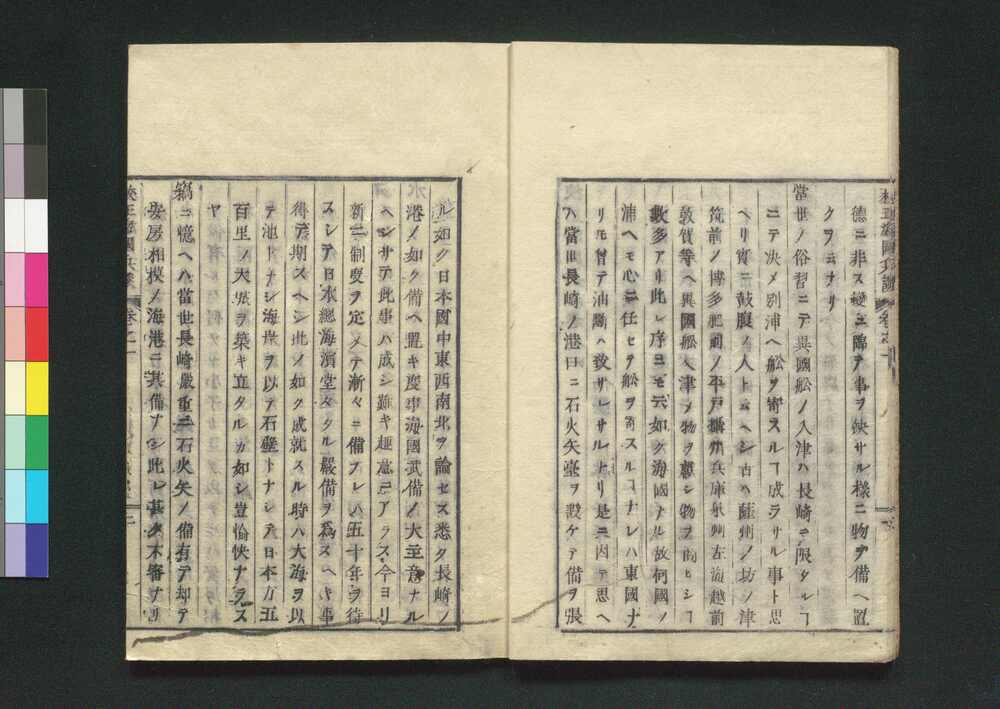 德ニ非ス變ニ臨テ事ヲ缺サル樣ニ物ヲ備ヘ置
クヲ云ナリ
當世ノ俗習ニテ異國舩ノ入津ハ長崎ニ限タルヿ
ニテ决メ別浦ヘ舩ヲ寄スルヿ成ラサル事ト思
ヘリ實ニ鼓腹ノ人ト云ヘシ古ヘ薩州ノ坊ノ津
筑前ノ博多肥前ノ平戸攝州兵庫泉州左海越前
敦賀等ヘ異國舩入津メ物ヲ獻シ物ヲ商ヒシヿ
數多アリ此レ序ニモ云如ク海國ナル故何國ノ
浦ヘモ心ニ任セテ舩ヲ寄スルヿナレハ東國ナ
リモ曾テ油斷ハ致サレサルヿナリ是ニ因テ思ヘ
ハ當世長崎ノ港口ニ石火矢臺ヲ設ケテ備ヲ張
ル如ク日本國中東西南北ヲ論セス悉ク長崎ノ
港ノ如ク備ヘ置キ度事海國武備ノ大主意ナル
ヘシサテ此事ハ成シ難キ趣意ニアラス今ヨリ
新ニ制度ヲ定メテ漸々ニ備フレハ五十年ヲ待
スシテ日本總海濱堂々タル嚴備ヲ爲スヘキ事
得テ期スヘシ此ノ如ク成就スル時ハ大海ヲ以
テ池トナシ海岸ヲ以テ石壁トナシテ日本方五
百里ノ大城ヲ築キ立タルカ如シ豈愉快ナラス
ヤ
竊ニ憶ヘハ當世長崎嚴重ニ石火矢ノ備有テ却テ
安房相模ノ海港ニ其備ナシ此レ甚タ不審ナリ